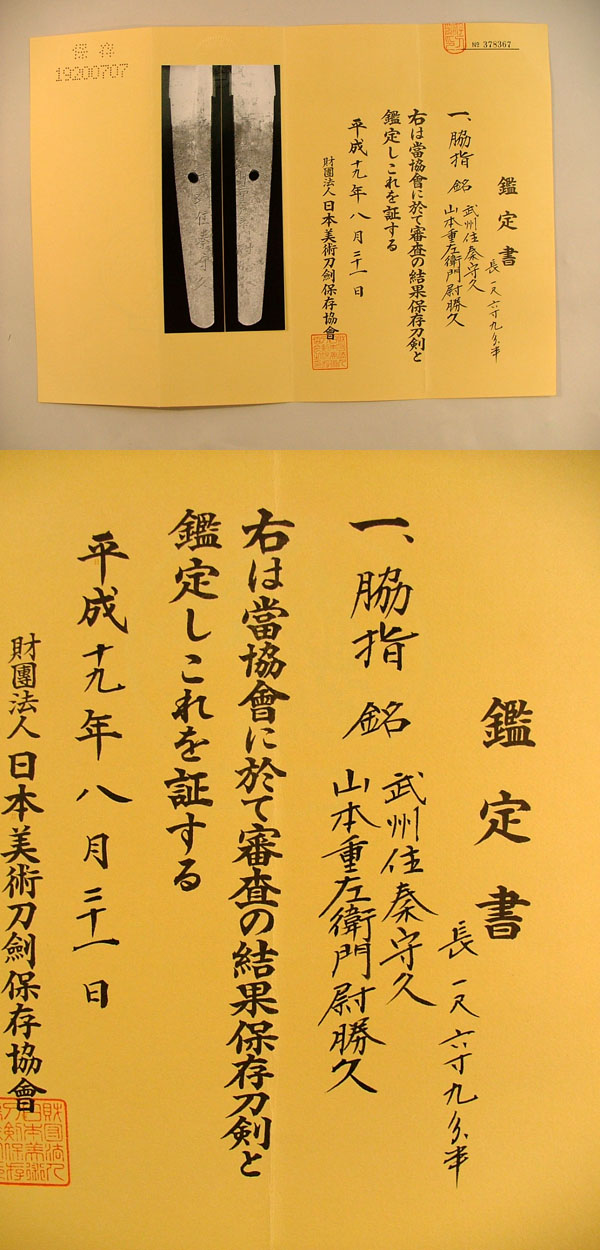 保存
19200707
№ 378367
鑑定書
長一尺六寸九分半
一、脇指 銘 武州住秦守久
山本重左衛門尉勝久
右は當協會に於て審査の結果保存刀剣と
鑑定しこれを証する
平成十九年八月二十一日
財團法人日本美術刀劍保存協會
鑑定書
長一尺六寸九分半
一、脇指 銘 武州住秦守久
山本重左衛門尉勝久
右は當協會に於て審査の結果保存刀剣と
鑑定しこれを証する
平成十九年八月二十一日
財團法人日本美術刀劍保存協會